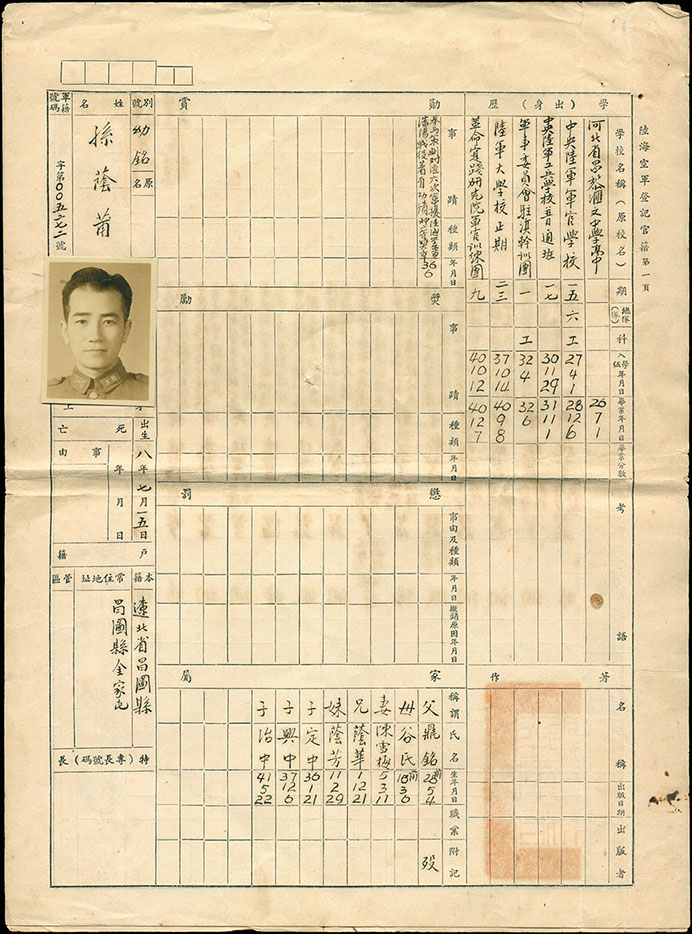 陸海空軍登記官籍 第一頁
學歷（出身）
學校名稱（原校名）
期
總隊（隊）
科
入學（伍）年月日
畢業年月日
畢業分數
考語
河北省昌黎滙文中學高中
26 7 1
中央陸軍軍官學校
一五
六
工
27 4 1
28 12 6
中央陸軍工兵學校普通班
一七
30 11 29
31 11 1
軍事委員會駐滇幹訓團
一
工
32 4
32 6
陸軍大學校正期
二三
37 10 14
40 9 8
革命實踐研究院軍官訓練團
九
40 10 12
40 12 7
著作
名稱
出版日期
出版者
勛賞
事蹟
種類
年月日
36 6
獎勵
事蹟
種類
年月日
懲罰
事由及種類
年月日
撤銷原因年月日
家屬
稱謂
氏名
生年月日
職業
附記
父 鼎銘 前28 5 4 歿
母 谷氏 前18 3 6
妻 陳雪梅 5 3 11
兄 蔭華 1 12 21
妹 蔭芳 11 2 29
子 定中 36 1 21
子 興中 37 12 6
子 治中 41 5 22
別號
幼銘
原名
姓名
孫蔭甫
軍籍號碼
字第00五六七二號
出生
八年七月一五日
死亡
事由
年月日
戶籍
本籍
遼北省昌圖縣
常住地址
昌圖縣金家屯
管區
特長（專長號碼）